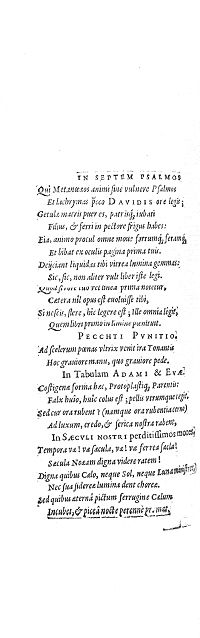 IN SEPTEM PSALMOS
Qui Metanœos animi sine vulnere Psalmos
Et lachrymas DAVIDIS ore legis;
Getula matris puer es, patrisq́, iubati
Filius, & ferri in pectore frigus habes:
Eia, animo procul omne move fastumq́, feramq́,
Et libat ex oculis pagina prima tuis.
Dejiciant liquidas tibi vitrea lumina gemmas:
Sic, sic, non aliter vult liber iste legi.
Quid flere tuo prima nocetur,
Cætera nil opus est evoluisse tibi,
Si nescis, flere, hîc legere est; ille omnia legit,
Quem libri primo in lumine pœnituit.
PECCATI PUNITIO.
Ad scelerum pœnas ultrix venit ira Tonantis
Hoc graviore manu, quo graviore pede.
In Tabulam ADAMI & EVÆ
Costigena forma hæc, Protoplastiq́, Parentis:
Falx huic, huic colus est; pellis utrumque tegit.
Sed cur ora rubent? (namque ora rubentia cerno)
Ad luxum, credo, & scerica nostra rubent,
In SÆCULI NOSTRI perditissimos mores
Tempora væ! væ sæcula, væ! væ ferrea sæcla!
Sæcula Noæam digna videre ratem!
Digna quibus Calo, neque Sol, neque Luna ministret,
Nec sua sidereæ lumina dent choreæ.
Sed quibus æternâ pictum ferrugine Cælum
Incubet, & pictâ nocte perenne